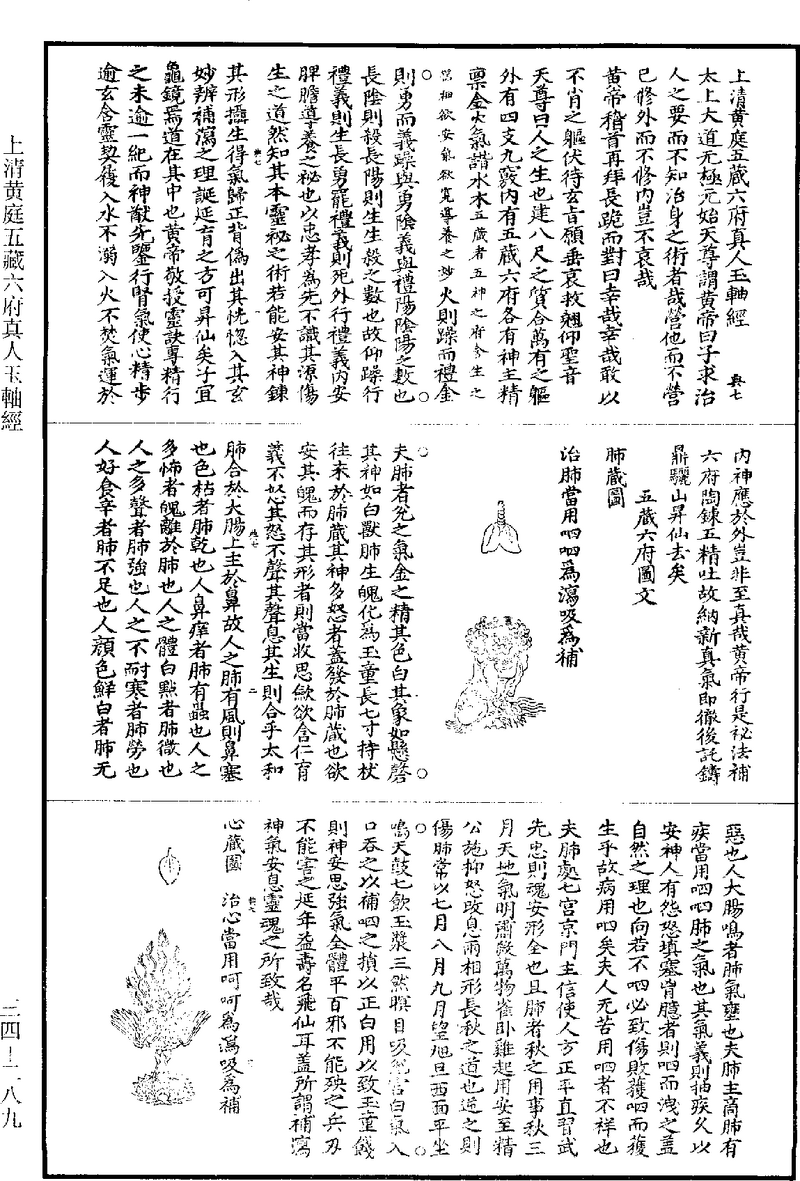 上清黃庭五藏六府真人玉軸經
太上大道无極元始天尊謂黃帝曰子求治
人之要而不知治身之術者哉營他而不營
已修外而不修内豈不哀哉
黃帝稽首再拜長跪而對曰幸哉幸哉敢以
不肖之軀伏待玄言願垂哀救翹仰聖音
天尊曰人之生也建八尺之質合萬有之軀
外有四支九竅内有五藏六府各有神主精
禀金火氣諧水本五歲者五神之府今生之
則勇而義躁與勇陰義與禮陽陰陽之數也
長陰則殺長陽則生生殺之數也故仰躁行
禮義則生長勇罷禮義則死外行禮義内安
脾膽導養之祕也以忠孝為先不識其源傷
生之道然知其本靈祕之術若能安其神鍊
其形攝生得氣歸正背偽出其恍惚入其玄
妙辨補瀉之理誕延育之方可昇仙矣子宜
龜鏡焉道在其中也黃帝敬授靈訣專精行
之未逾一紀而神猷先鑒行腎氣使心精步
逾玄含靈契後入水不溺入火不焚氣運於
内神應於外豈非至真哉黃帝行是祕法補
六府陶鍊五精吐故納新真氣即徹後託鑄
鼎驪山昇仙去矣
五藏六府圖文
肺藏圖
治肺當用呬呬為瀉吸為補
夫肺者兌之氣金之精其色白其象如懸磬
其神如白獸肺生魄化為玉童長七寸持杖
往來於肺藏其神多怒者蓋發於肺藏也欲
安其魄而存其形者則當收思斂欲含仁育
義不怒其怒不聲其聲息其生則合乎太和
肺合於大腸上主於鼻故人之肺有風則鼻塞
也色枯者肺乾也人鼻痒者肺有蟲也人之
多怖者魄離於肺也人之體白點者肺微也
人之多聲者肺強也人之不耐寒者肺勞也
人好食辛者肺不足也人顏色鮮白者肺无
惡也人大腸鳴者肺氣壅也夫肺主商肺有
疾當用呬呬肺之氣也其氣義則抽疾久以
安神人有怨怒填塞胷臆者則呬而洩之蓋
自然之理也向若不呬必致傷敗獲呬而獲
生乎故病用呬矣夫人无苦用呬者不祥也
夫肺處七宮京門主信使人方正平直習武
先忠則魂安形全也且肺者秋之用事秋三
月天地氣明肅殺萬物雀卧雞起用安至精
公施抑怒攻息兩相形長秋之道也逆之則
傷肺常以七月八月九月望旭旦西面平坐
鳴天鼓七飲玉漿三然瞑目吸兌宮白氣入
口吞之以補呬之損以正白用以致玉童饌
則神安思強氣全體平百邪不能殃之兵刃
不能害之延年益壽名飛仙耳蓋所謂補瀉
神氣安息靈魂之所致哉
心藏圖　治心當用呵呵為瀉吸為補
上清黃庭五藏六府真人玉軸經
三四－二八九